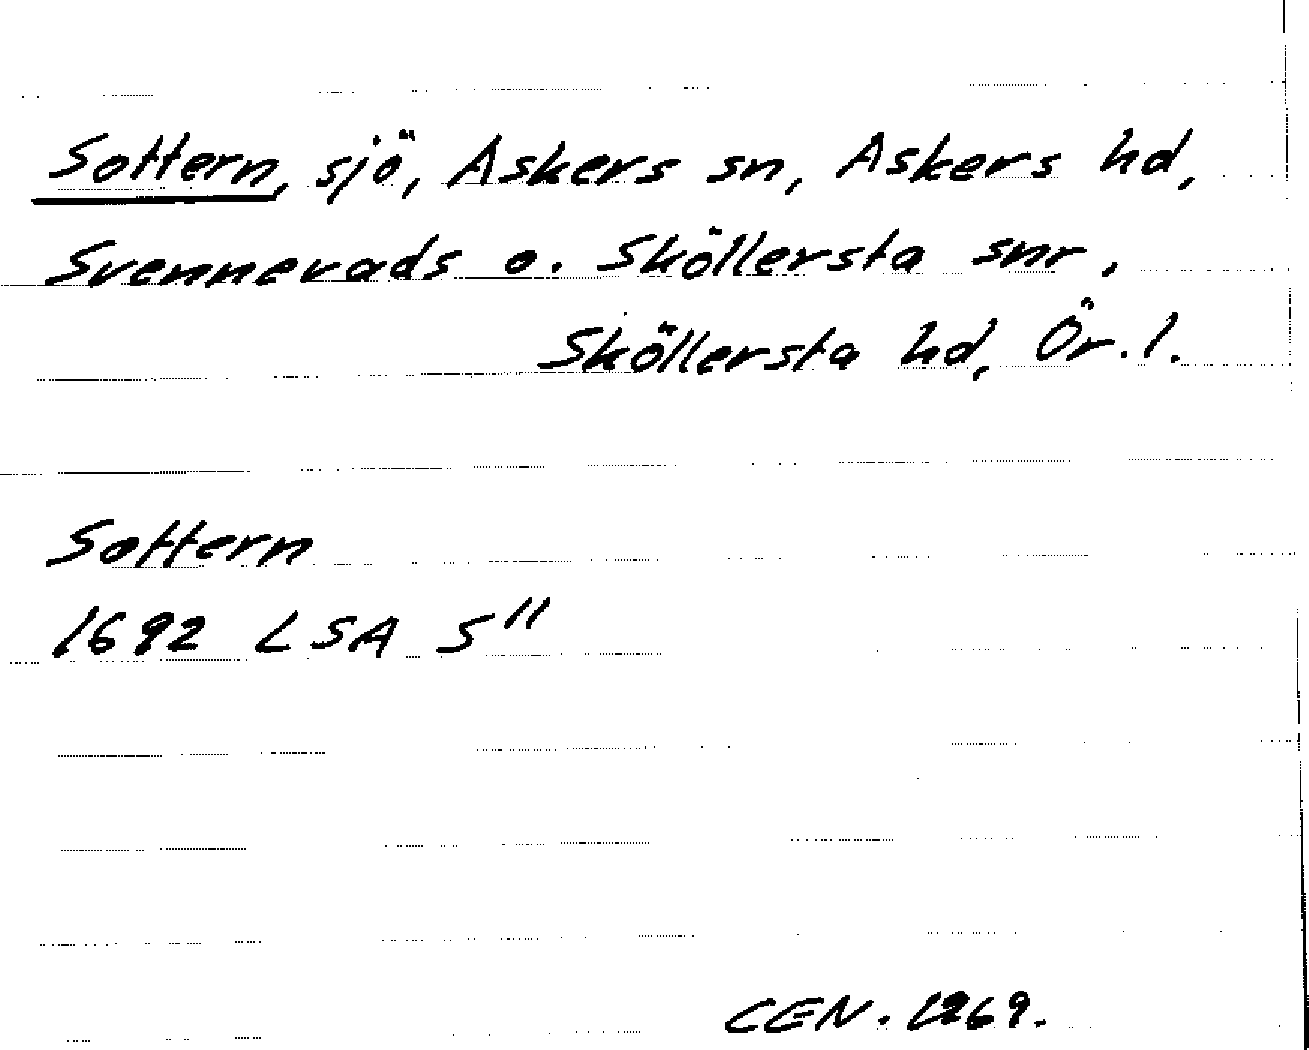 Sottern, sjö, Askers sn, Askers hd,
Svennevads o. Sköllersta snr,
Sköllersta hd, Ör. l.
Sottern
1692 LSA S"
CEN. 1969.